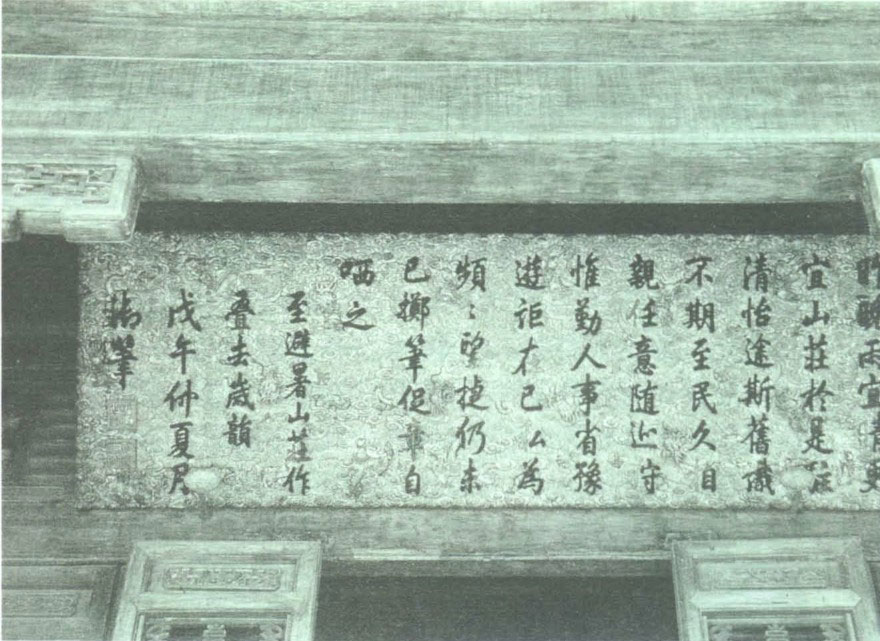 雨宜更
宜山莊於是
清怡途斯舊儀
不期至民久自
親任意随近守
惟勤人事省豫
遊詎才已厶為
頻〻望捷仍未
已擲筆促章自
哂之
至避暑山莊作
叠去歲韻
戊午仲夏月
御筆